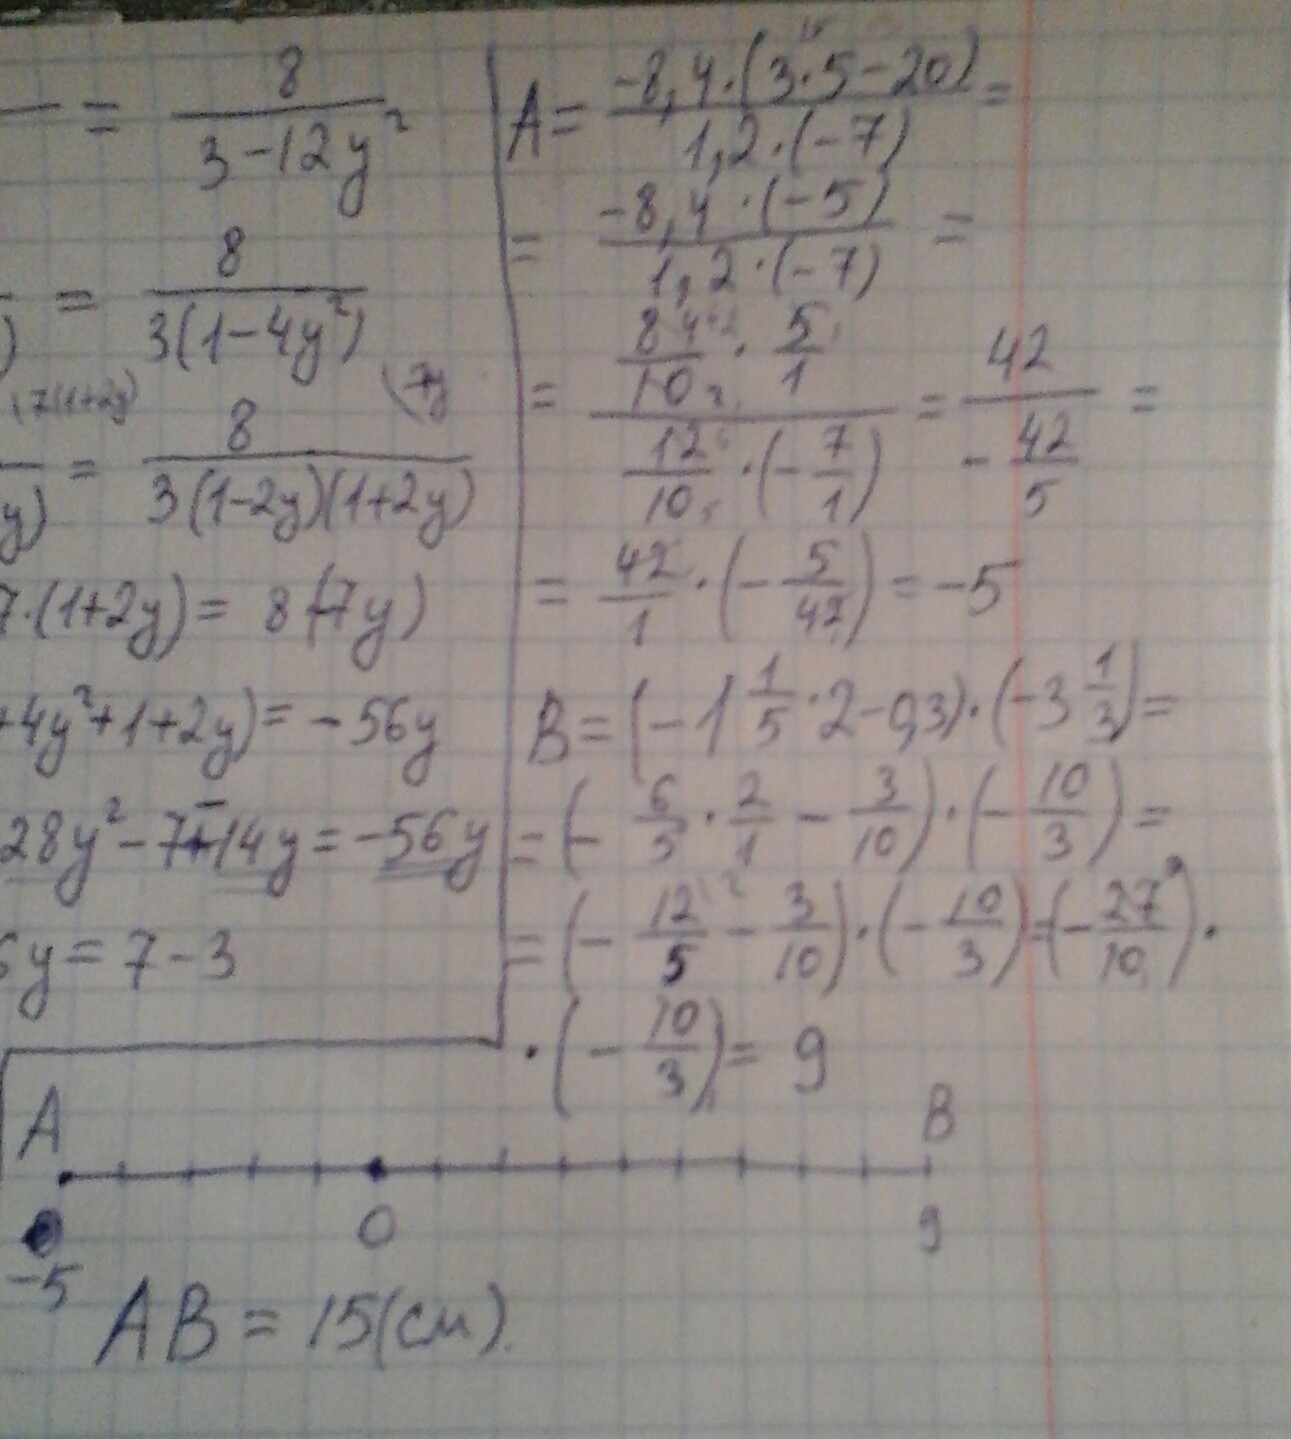 = 8/(3-12y²)
) = 8/(3(1-4y²))
(7(1+2y) (7y
y) = 8/(3(1-2y)(1+2y))
7·(1+2y)= 8(-7y)
+4y²+1+2y)=-56y
28y²-7-14y=-56y
6y=7-3
A= (-8,4·(3·5-20))/(1,2·(-7)) =
15
= (-8,4·(-5))/(1,2·(-7)) =
= (84/10 · 5/1)/(12/10 ·(-7/1)) = 42/(-42/5) =
= 42/1 ·(-5/42)=-5
B=(-1 1/5 ·2-0,3)·(-3 1/3)=
=(- 6/5 · 2/1 - 3/10)·(- 10/3)=
=(- 12/5 - 3/10)·(- 10/3)=(- 27/10)·
·(- 10/3)= 9
A B
-5 0 9
AB=15(см).